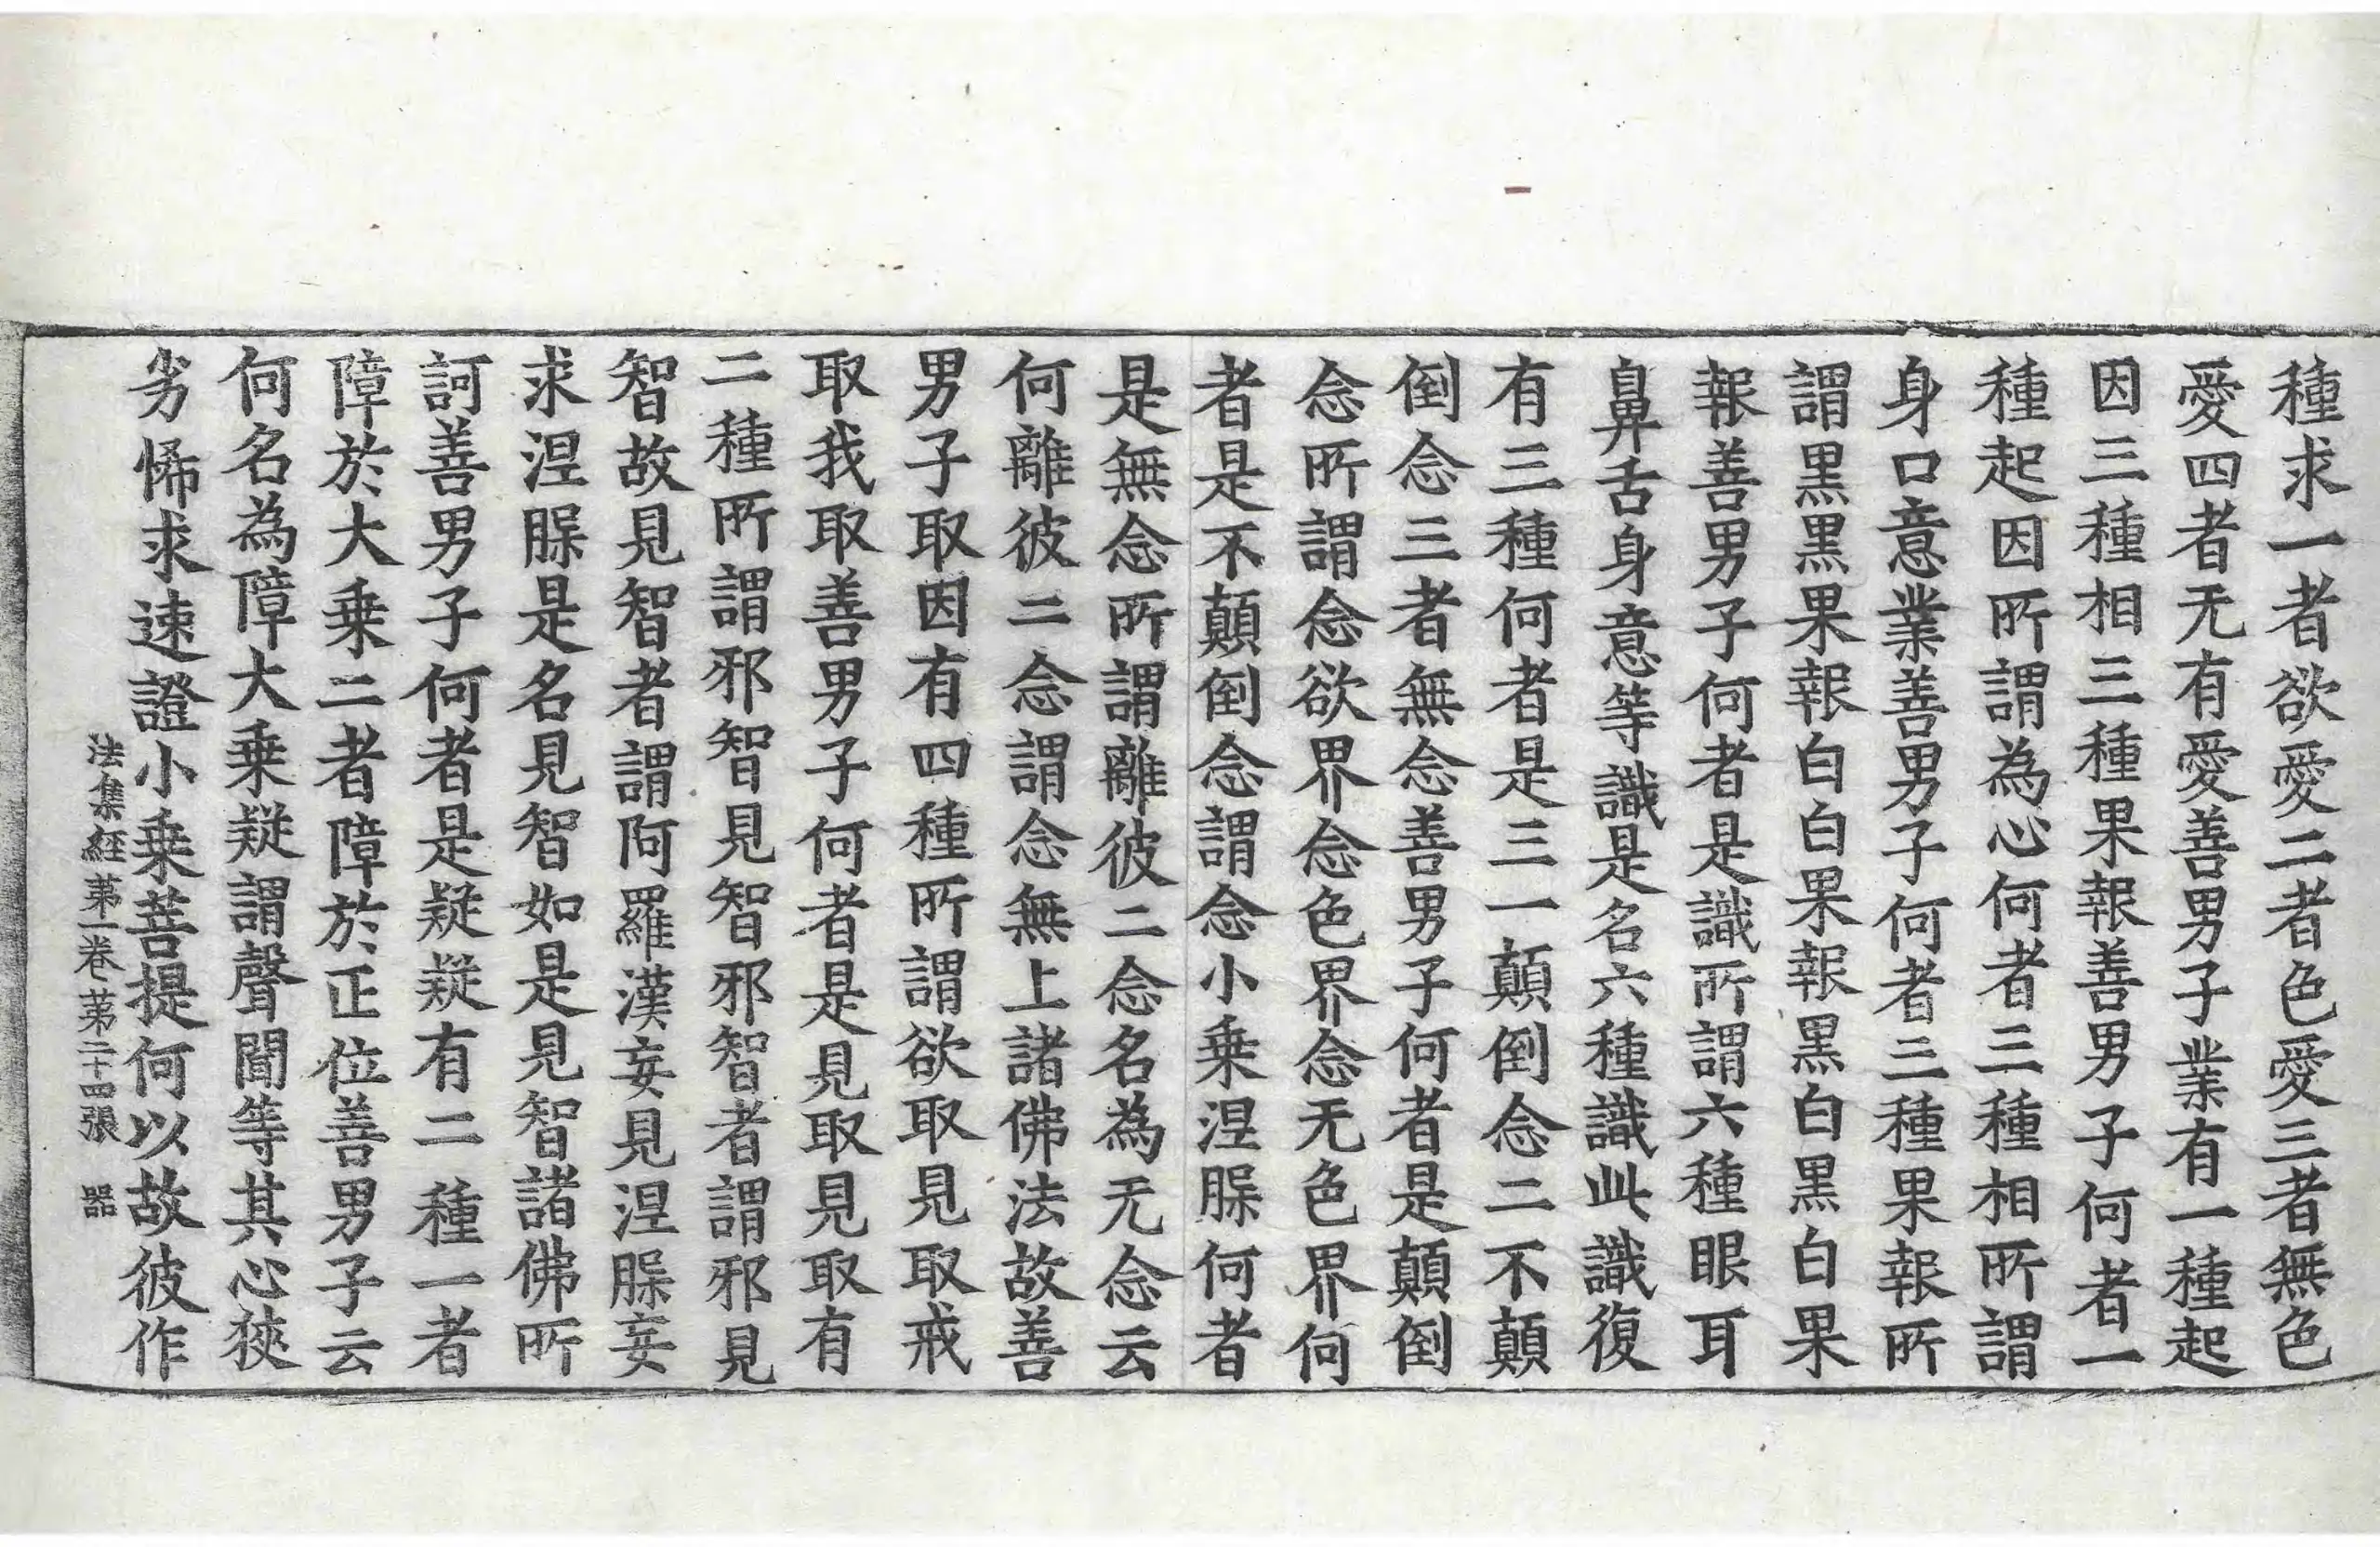 種求一者欲愛二者色愛三者無色
愛四者无有愛善男子業有一種起
因三種相三種果報善男子何者一
種起因所謂為心何者三種相所謂
身口意業善男子何者三種果報所
謂黑黑果報白白果報黑白黑白果
報善男子何者是識所謂六種眼耳
鼻舌身意等識是名六種識此識復
有三種何者是三一顛倒念二不顛
倒念三者無念善男子何者是顛倒
念所謂念欲界念色界念无色界何
者是不顛倒念謂念小乗涅脲何者
是無念所謂離彼二念名為无念云
何離彼二念謂念無上諸佛法故善
男子取因有四種所謂欲取見取戒
取我取善男子何者是見取見取有
二種所謂邪智見智邪智者謂邪見
智故見智者謂阿羅漢妄見涅脲妄
求涅脲是名見智如是見智諸佛所
訶善男子何者是疑疑有二種一者
障於大乗二者障於正位善男子云
何名為障大乗疑謂聲聞等其心狹
劣怖求速證小乗菩提何以故彼作
法集經第一卷第二十四張 器